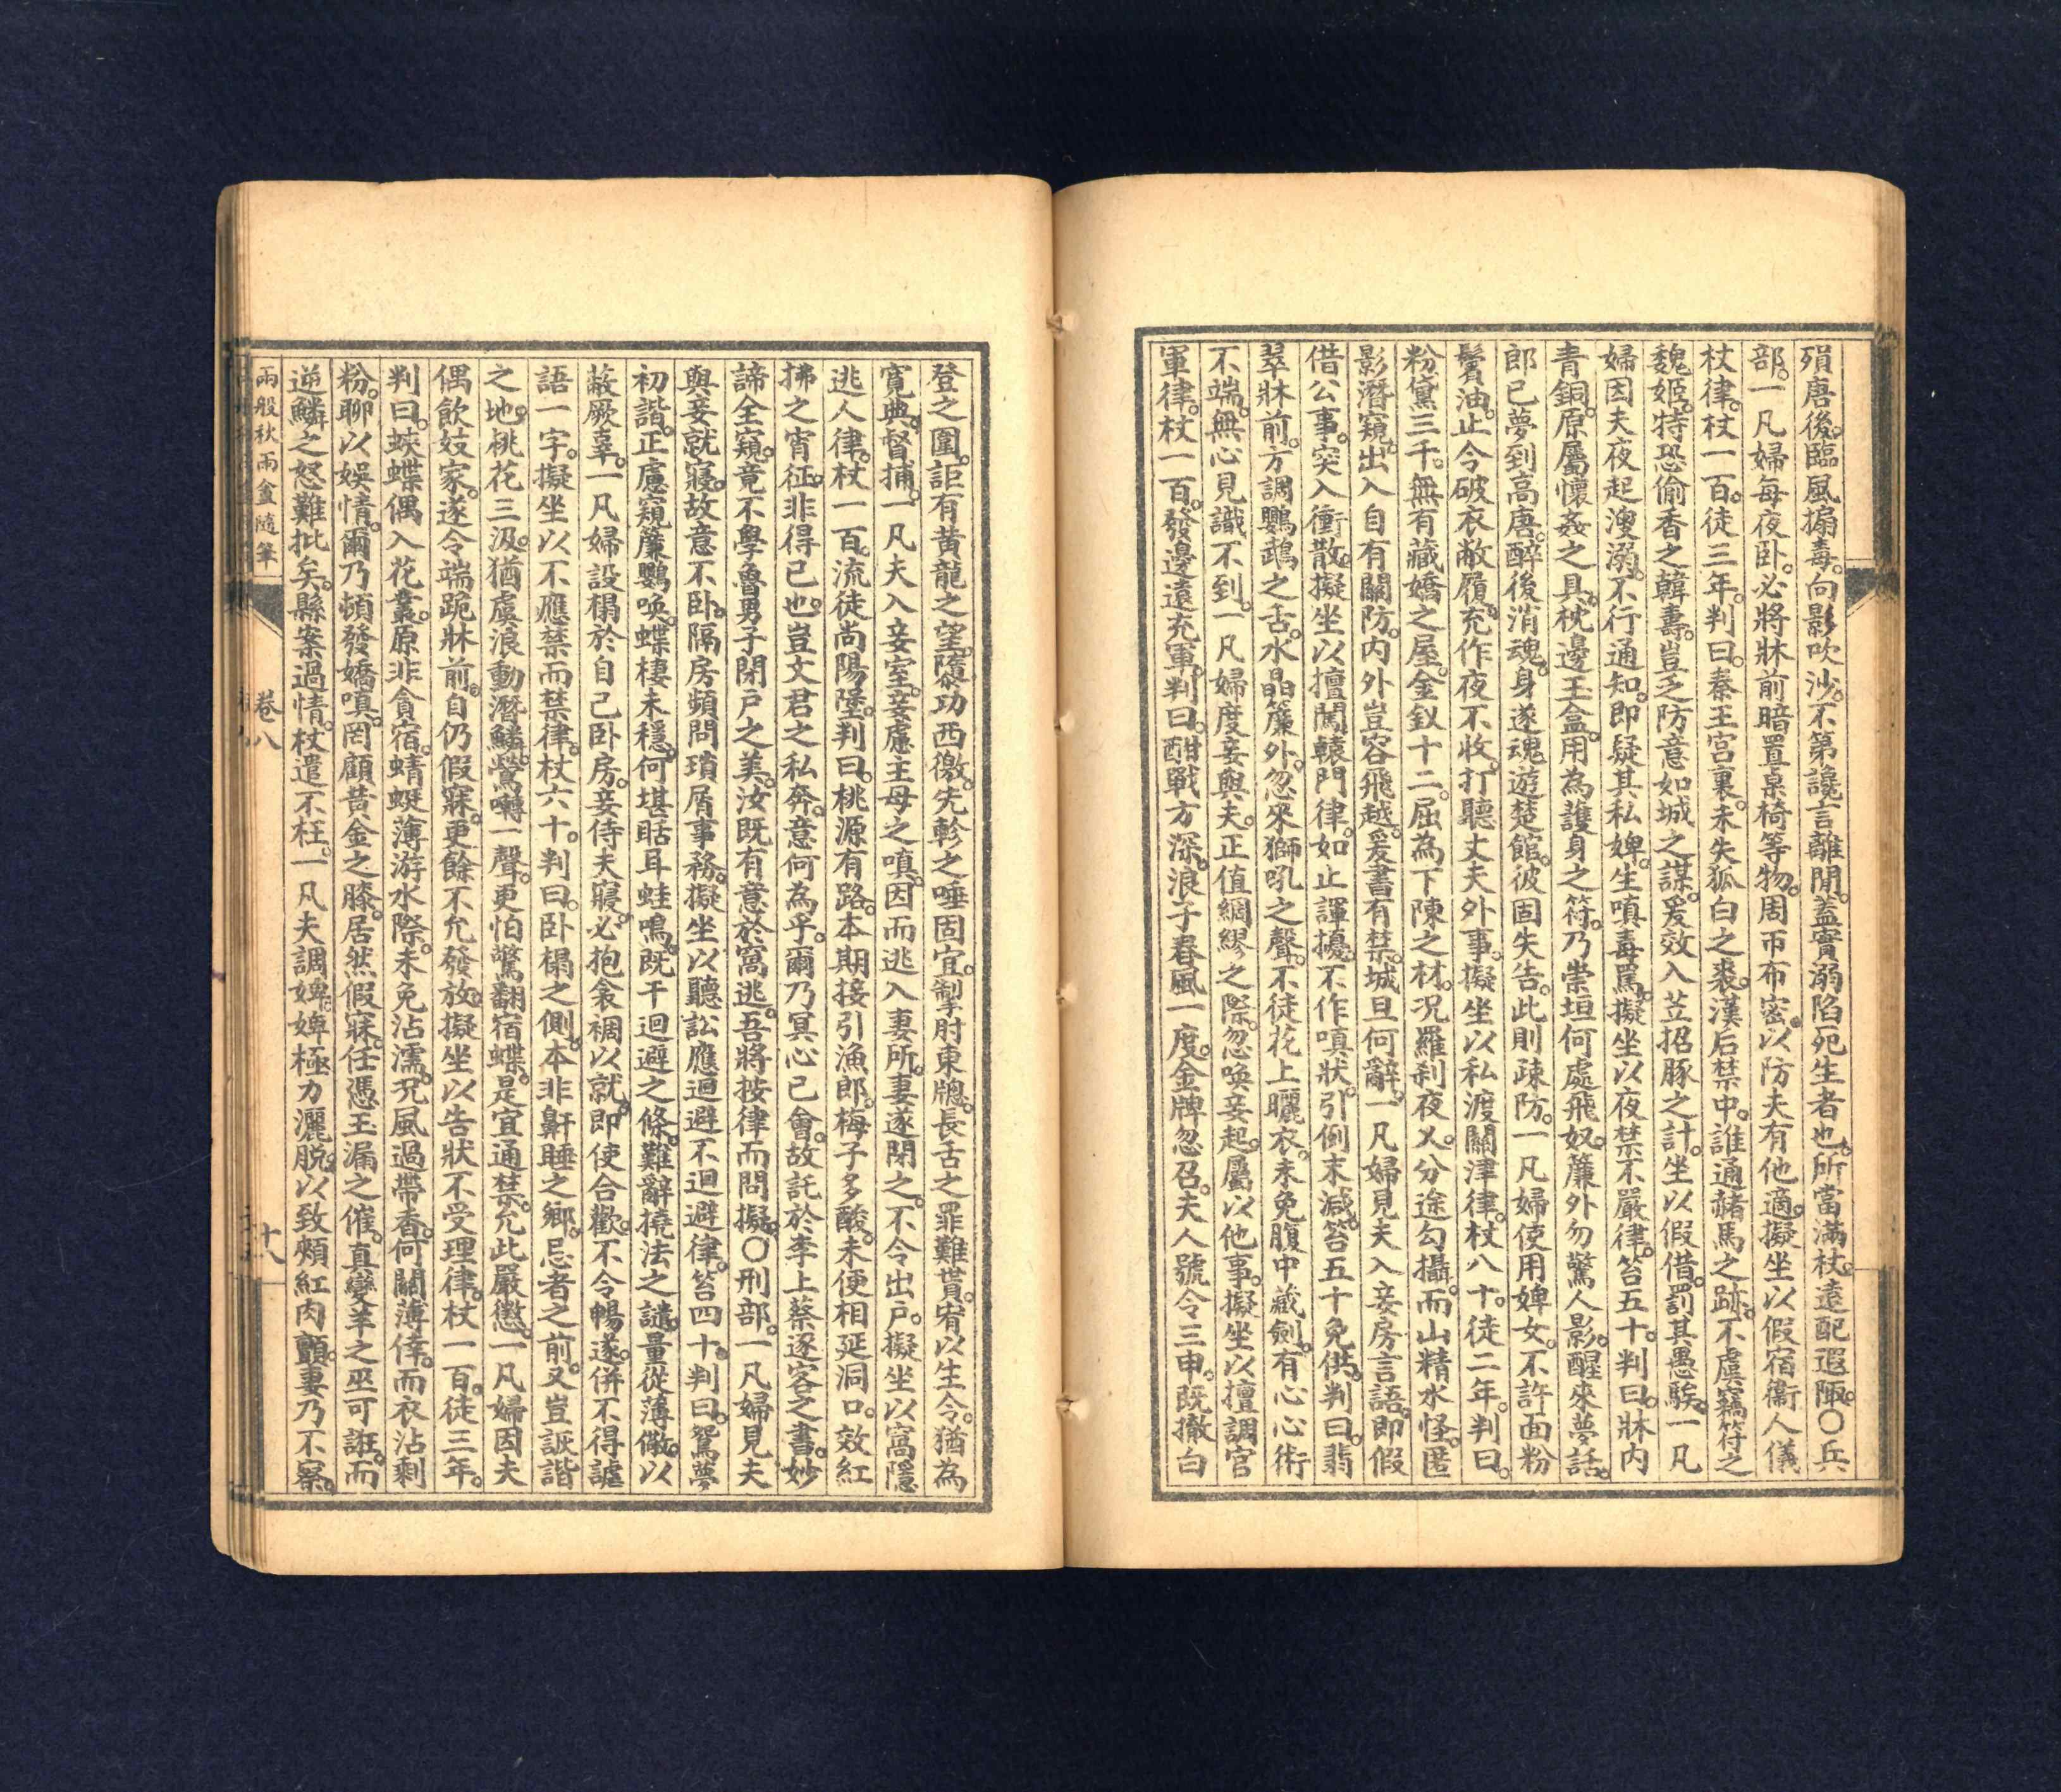 殞唐後。臨風搧毒。向影吹沙。不第讒言離間。蓋實溺陷死生者也。所當滿杖。遠配遐陬。〇兵
部。一凡婦每夜臥。必將牀前暗置桌椅等物。周帀布密。以防夫有他適。擬坐以假宿衞人儀
杖律。杖一百。徒三年。判曰。秦王宮裏。未失狐白之裘。漢后禁中。誰通赭馬之跡。不虞竊符之
魏姬。特恐偷香之韓壽。豈乏防意如城之謀。爰效入苙招豚之計。坐以假借。罰其愚騃。一凡
婦因夫夜起溲溺。不行通知。即疑其私婢。生嗔毒罵。擬坐以夜禁不嚴律。笞五十。判曰。牀內
青銅。原屬懷姦之具。枕邊玉盒。用為護身之符。乃崇垣何處飛奴。簾外勿驚人影。醒來夢話。
郎已夢到高唐。醉後消魂。身遂魂遊楚館。彼固失告。此則疎防。一凡婦使用婢女。不許面粉
鬢油。止令破衣敝履。充作夜不收。打聽丈夫外事。擬坐以私渡關津律。杖八十。徒二年。判曰。
粉黛三千。無有藏嬌之屋。金釵十二。屈為下陳之材。況羅剎夜叉。分途勾攝。而山精水怪。匿
影潛窺。出入自有關防。內外豈容飛越。爰書有禁。城旦何辭。一凡婦見夫入妾房言語。即假
借公事。突入衝散。擬坐以擅闖轅門律。如止諢擾。不作嗔狀。引例末減。笞五十免供。判曰。翡
翠牀前。方調鸚鵡之舌。水晶簾外。忽來獅吼之聲。不徒花上曬衣。未免腹中藏劍。有心心術
不端。無心見識不到。一凡婦度妾與夫。正值綢繆之際。忽喚妾起。屬以他事。擬坐以擅調官
軍律。杖一百。發邊遠充軍。判曰。酣戰方深。浪子春風一度。金牌忽召。夫人號令三申。既撤白
登之圍。詎有黃龍之望。隳功西徼。先軫之唾固宜。掣肘東牕。長舌之罪難貰。宥以生令。猶為
寬典。督捕。一凡夫入妾室。妾慮主母之嗔。因而逃入妻所。妻遂閉之。不令出戶。擬坐以窩隱
逃人律。杖一百。流徒尚陽堡。判曰。桃源有路。本期接引漁郎。梅子多酸。未便相延洞口。效紅
拂之宵征。非得已也。豈文君之私奔。意何為乎。爾乃冥心已會。故託於李上蔡逐客之書。妙
諦全窺。竟不學魯男子閉戶之美。汝既有意於窩逃。吾將按律而問擬。〇刑部。一凡婦見夫
與妾就寢。故意不臥。隔房頻問瑣屑事務。擬坐以聽訟應迴避不迴避律。笞四十。判曰。鴛夢
初諧。正慮窺簾鸚喚。蝶棲未穩。何堪聒耳蛙鳴。既干迴避之條。難辭撓法之譴。量從薄儆。以
蔽厥辜。一凡婦設榻於自己臥房。妾侍夫寢。必抱衾裯以就。即使合歡。不令暢遂。併不得謔
語一字。擬坐以不應禁而禁律。杖六十。判曰。臥榻之側。本非鼾睡之鄉。忌者之前。又豈詼諧
之地。桃花三汲。猶虞浪動潛鱗。鶯囀一聲。更怕驚翻宿蝶。是宜通禁。允此嚴懲。一凡婦因夫
偶飲妓家。遂令端跪牀前。自仍假寐。更餘不允發放。擬坐以告狀不受理律。杖一百。徒三年。
判曰。蛺蝶偶入花叢。原非貪宿。蜻蜓薄游水際。未免沾濡。況風過帶香。何關薄倖。而衣沾剩
粉。聊以娛情。爾乃頓發嬌嗔。罔顧昔金之膝。居然假寐。任憑玉漏之催。真變羊之巫可誑。而
逆鱗之怒難批矣。縣案過情。杖遣不枉。一凡夫調婢。婢極力灑脫。以致頰紅肉顫。妻乃不察。
兩般秋雨盦隨筆
卷八
十八